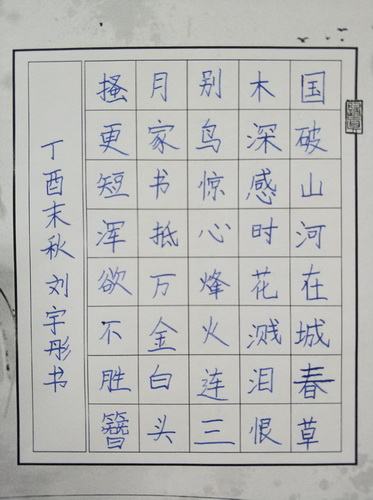 国破山河在城春草
木深感时花溅泪恨
别鸟惊心烽火连三
月家书抵万金白头
搔更短浑欲不胜簪
丁酉末秋 刘宇彤书